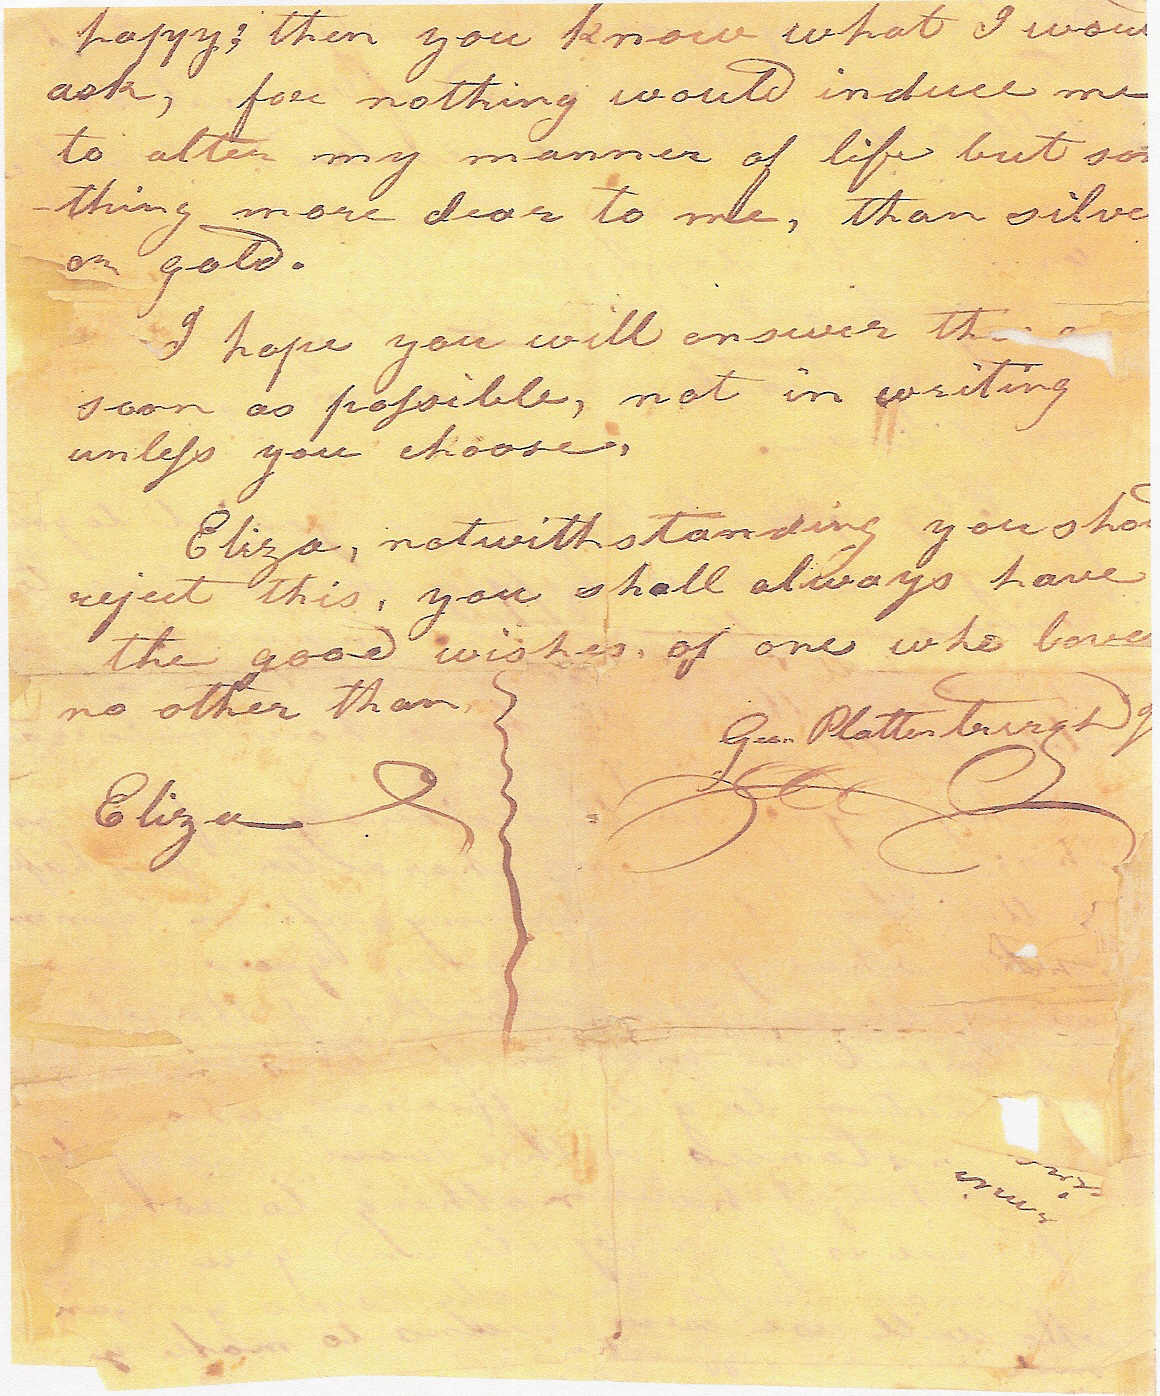 happy; then you know what I wou
ask, for nothing would induce me
to alter my manner of life but so
thing more dear to me, than silve
or gold.
I hope you will answer
soon as possible, not in writing
unless you choose.
Eliza, notwithstanding you sho
reject this, you shall always have
the good wishes of one who love
no other than
Geo. Plattenburgh
Eliza